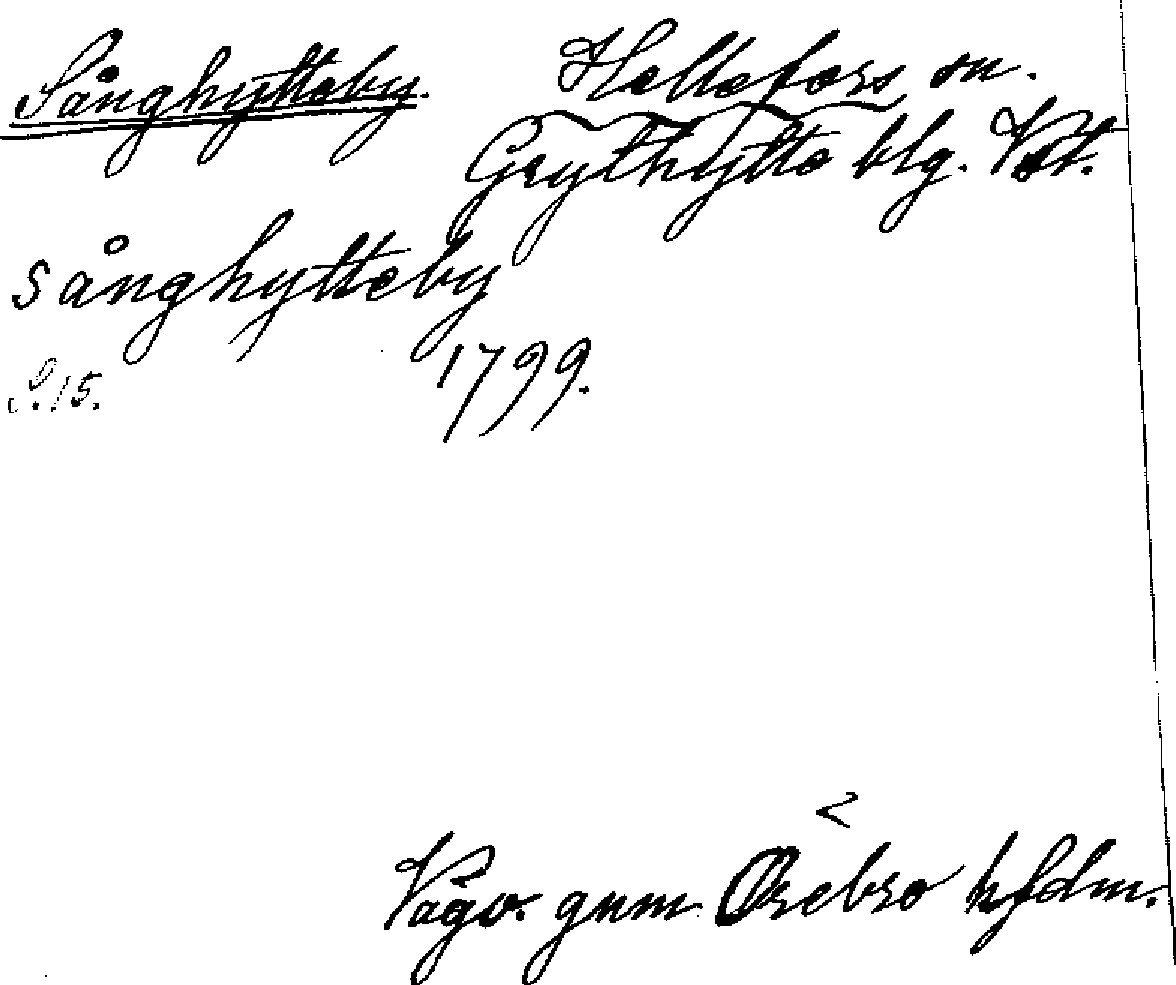 Sånghytteby. Hellefors sn.
Grythytte blg. Vstl.
Sånghytteby
1799.
S. 15.
Vägv. gnm. Örebro hfdm.